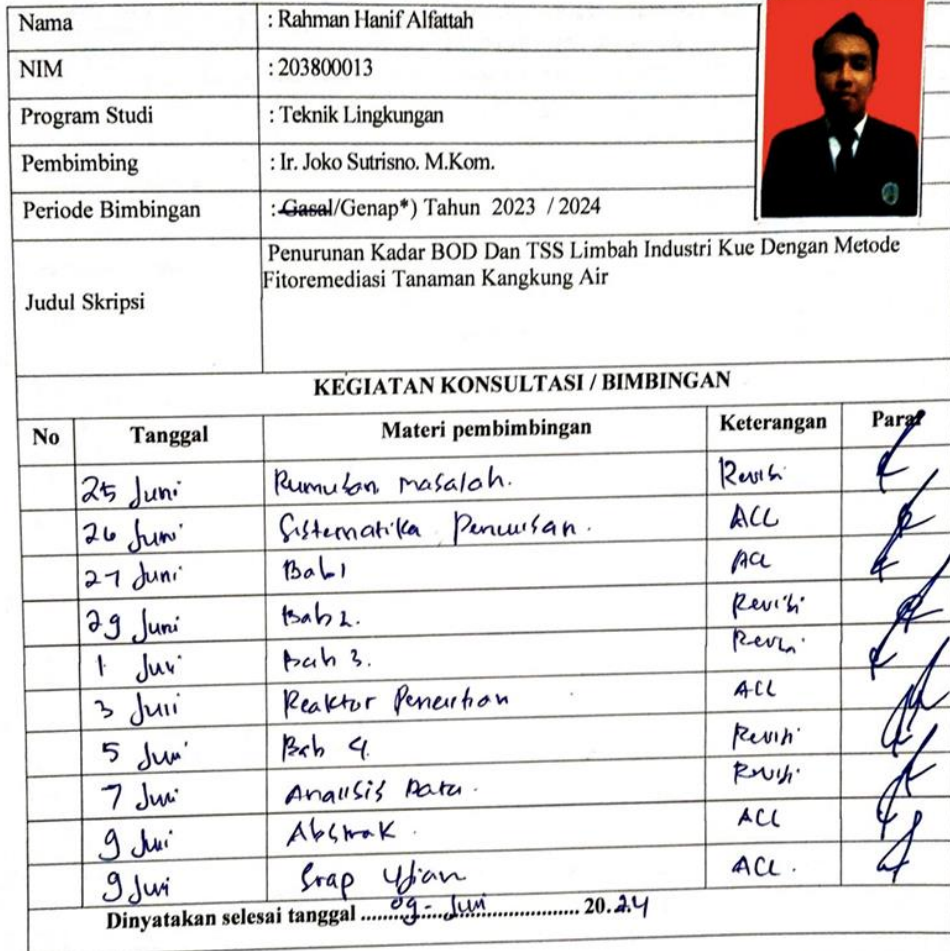 Nama : Rahman Hanif Alfattah
NIM : 203800013
Program Studi : Teknik Lingkungan
Pembimbing : Ir. Joko Sutrisno. M.Kom.
Periode Bimbingan : Gasal/Genap*) Tahun 2023 / 2024
Judul Skripsi
Penurunan Kadar BOD Dan TSS Limbah Industri Kue Dengan Metode
Fitoremediasi Tanaman Kangkung Air
KEGIATAN KONSULTASI / BIMBINGAN
No Tanggal Materi pembimbingan Keterangan Paraf
25 Juni Rumusan masalah. Revisi
26 Juni Sistematika Penulisan. ACC
27 Juni Bab 1 ACC
29 Juni Bab 2. Revisi
1 Juli Bab 3. Revisi
3 Juli Reaktor Penelitian ACC
5 Juli Bab 4 Revisi
7 Juli Analisis Data. Revisi
9 Juli Abstrak. ACC
9 Juli Siap Ujian ACC.
Dinyatakan selesai tanggal 09 - Juli 2024